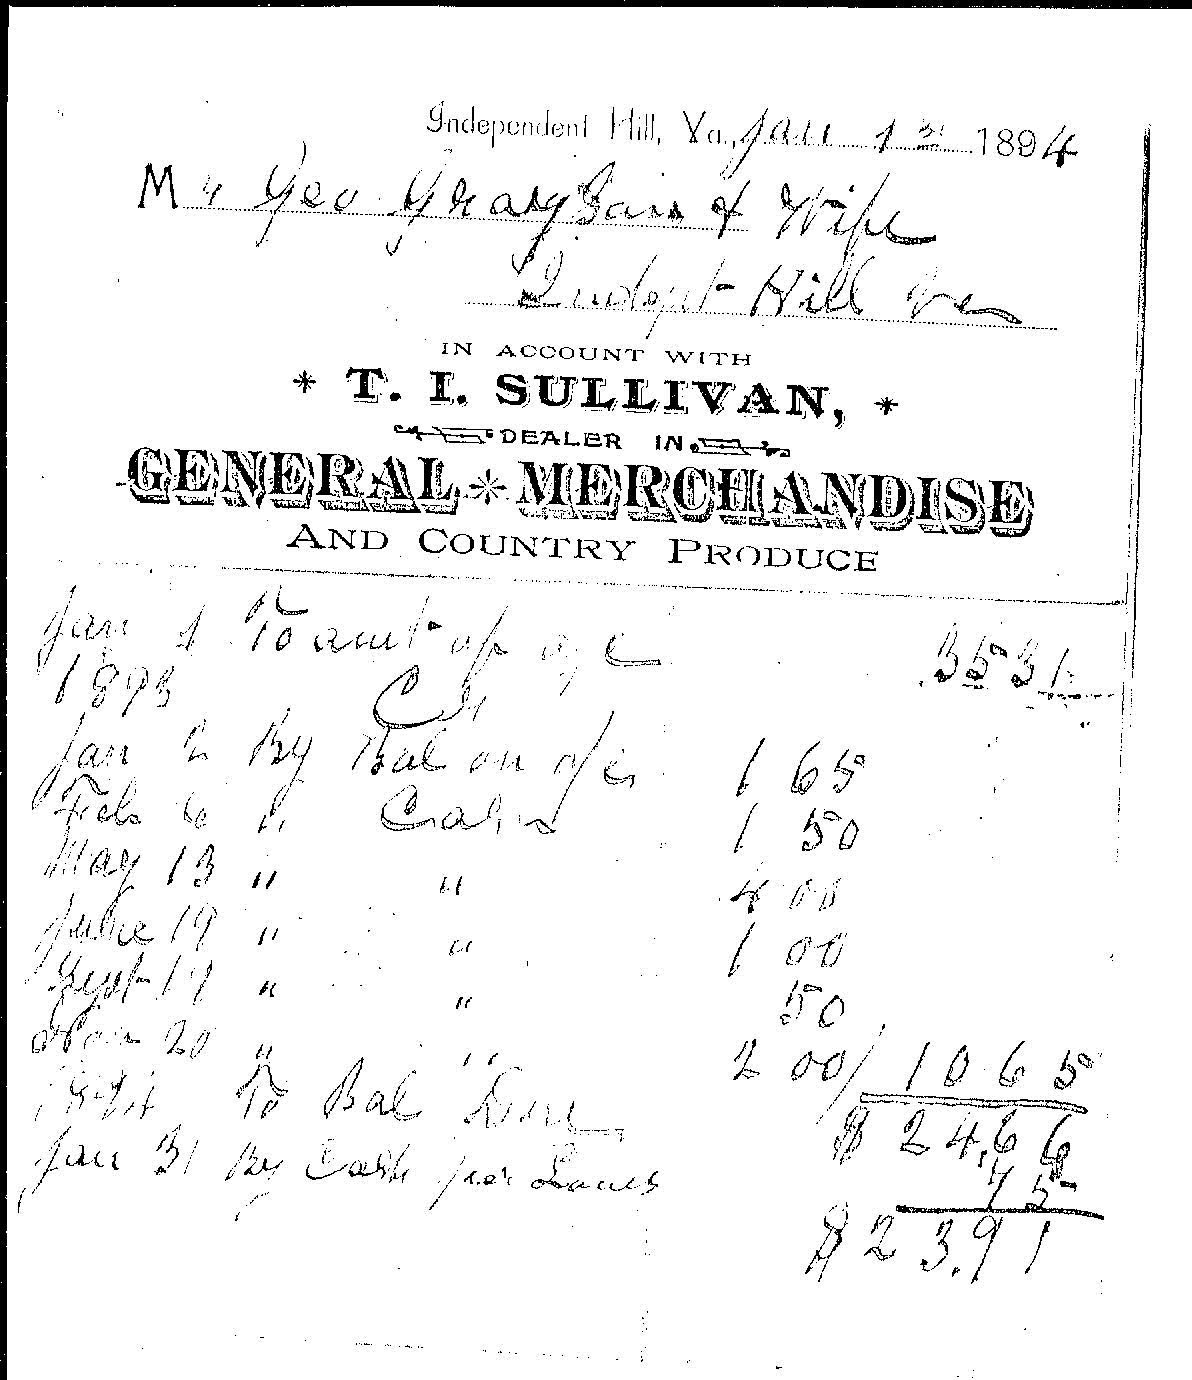 Independent Hill, Va., Jan 1st 1894
Mr Geo Grayson & Wife
Indept Hill Va
IN ACCOUNT WITH
* T. I. SULLIVAN, *
DEALER IN
GENERAL * MERCHANDISE
AND COUNTRY PRODUCE
Jan 1 To amt of a/c 35 31
1893 Cr
Jan 2 By Bal on a/c 1 65
Feb 6 " Cash 1 50
May 13 " " 4 00
June 19 " " 1 00
Sept 17 " " 50
Nov 20 " " 2 00 / 10 65
1894 To Bal Due $ 24.66
Jan 31 By Cash per 75
$ 23.91